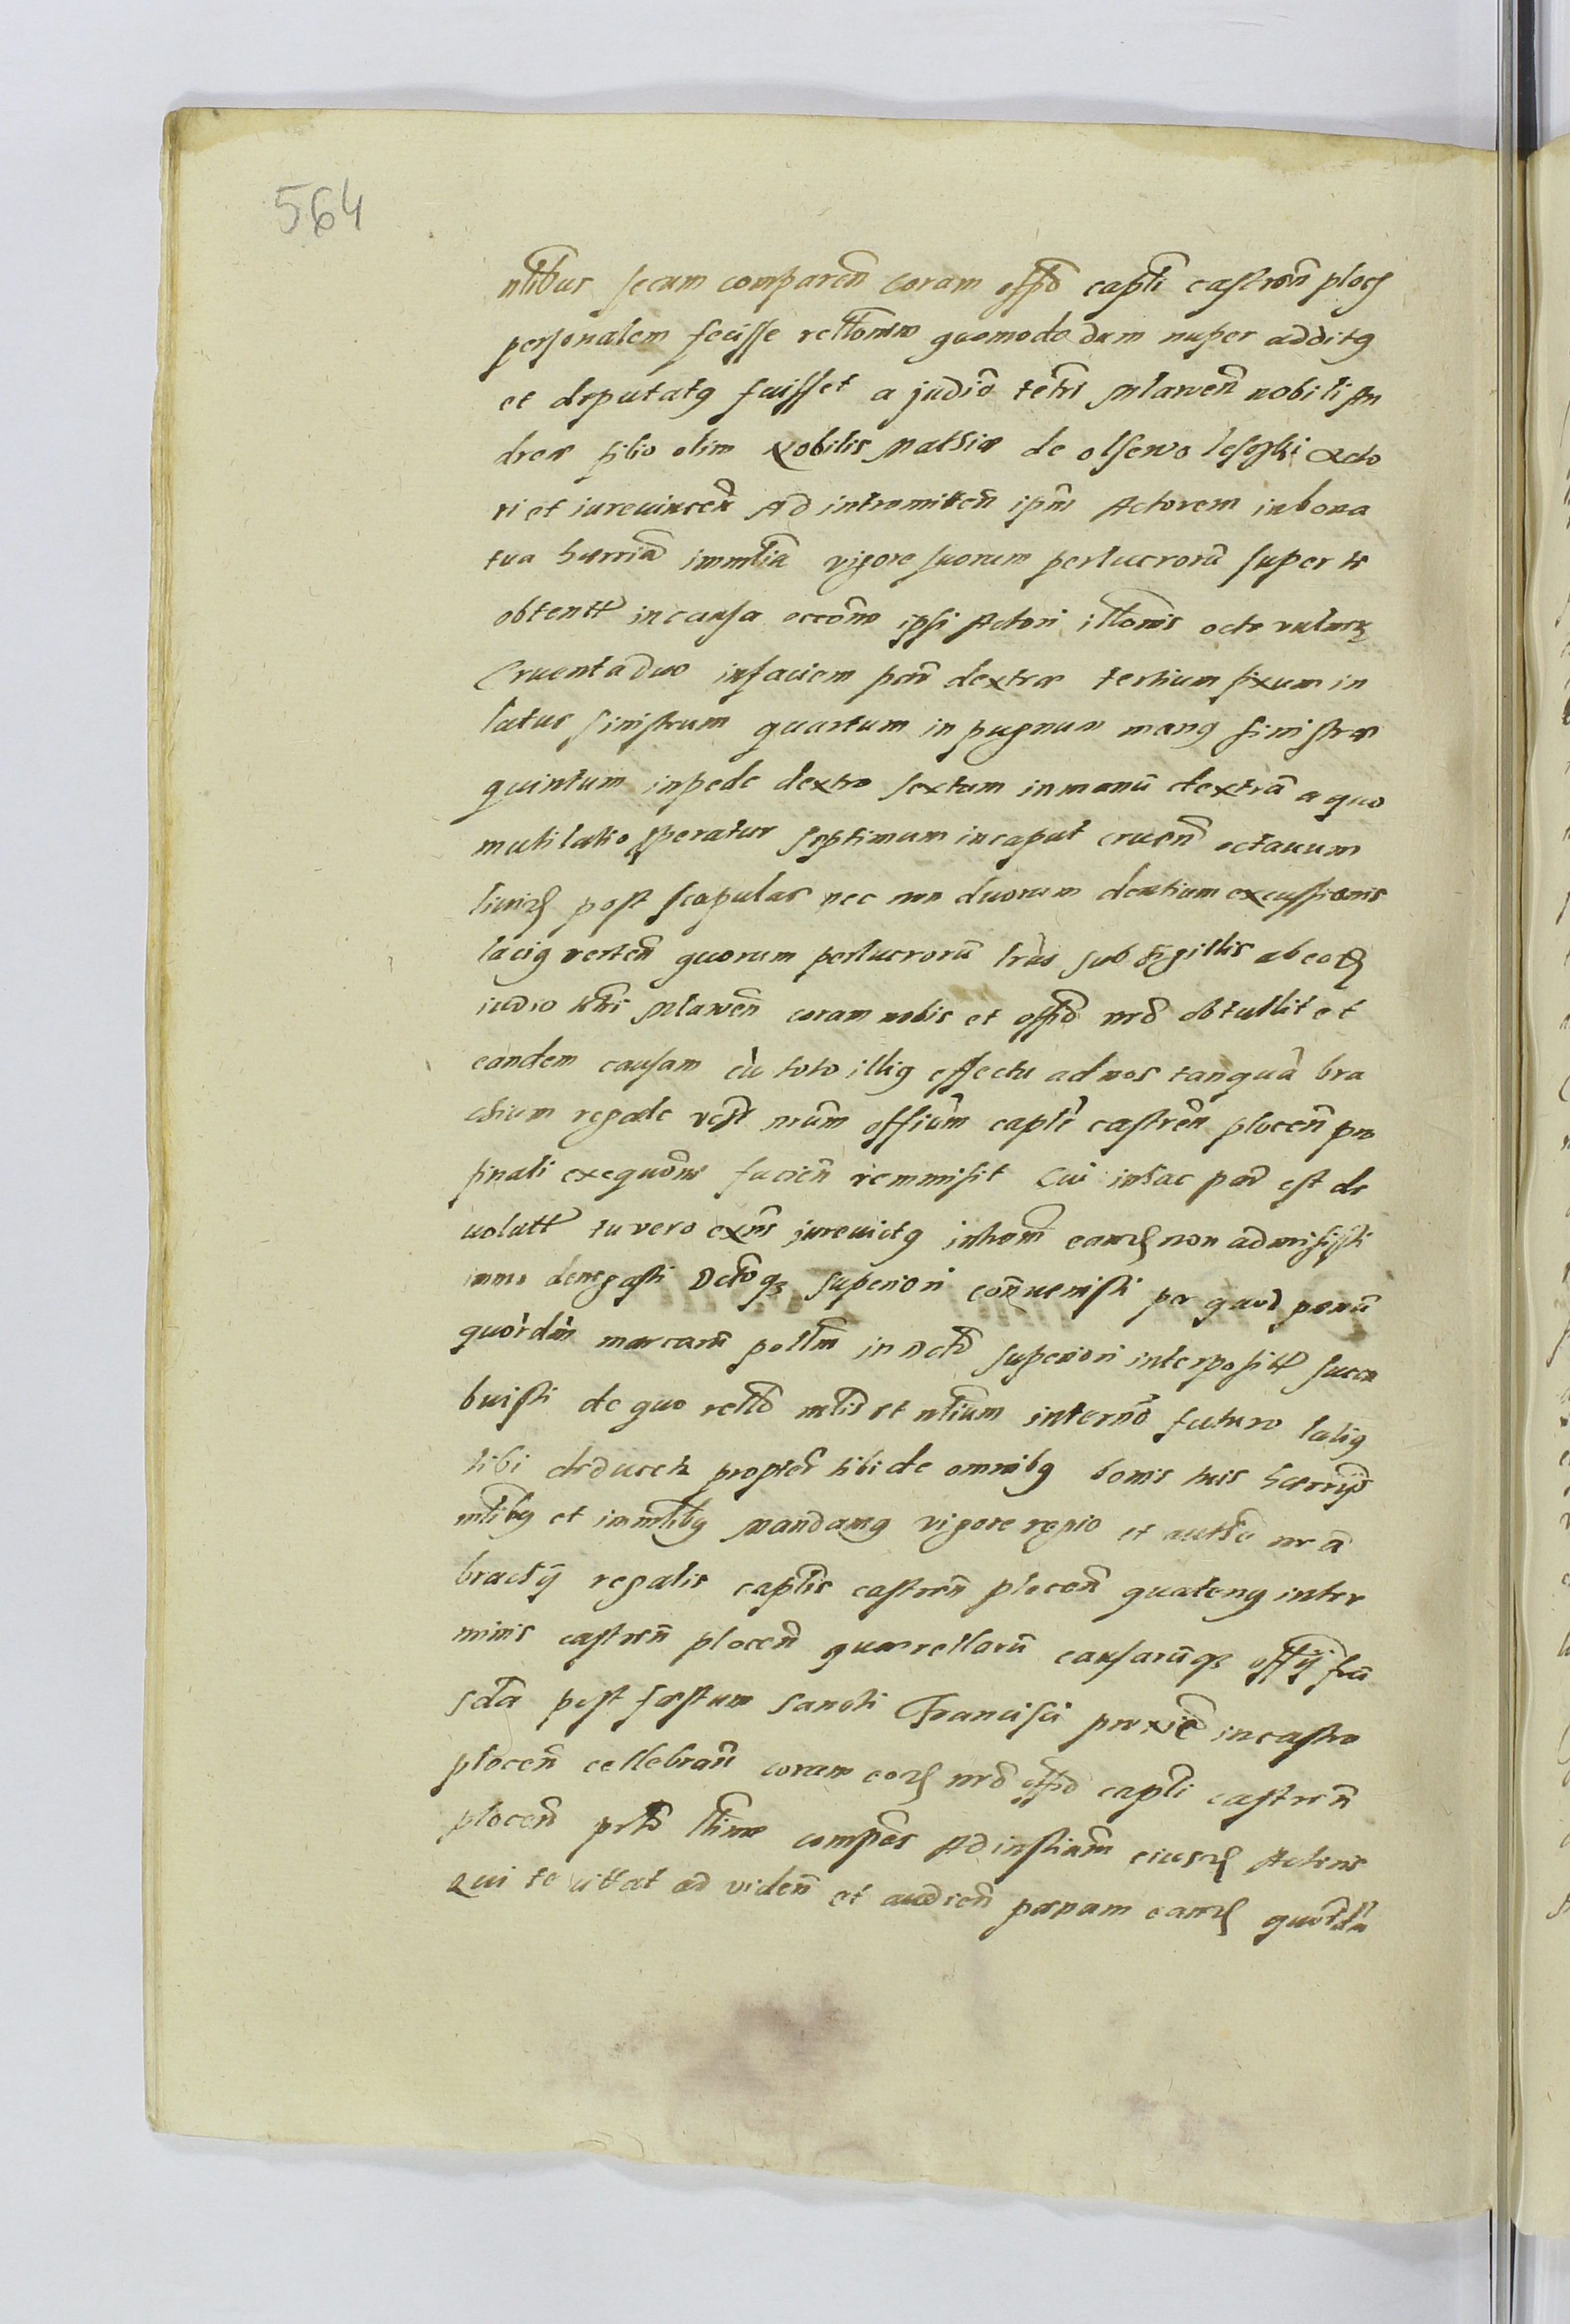 564
nltibus secum comparen coram offo capli castren ploc
personalem fecisse rellonem quomodo dum nuper additq
et deputatq fuisset a judio terri Mlawen nobili An
drea filio olim Nobilis Mathiæ de olsewo Acto
ri et iurevincen Ad intromitten ipm Actorem in bona
tua hærria immlia vigore suorum perlucrorū super te
obtent in causa occōne ipsi Actori illonis octo vulner
Cruenta duo in faciem par dextræ tertium fixum in
latus sinistrum quartum in pugnum manq sinistræ
quintum in pede dextro sextum in manū dextrā a quo
mutilatio speratur septimum in caput cruen octauum
liuid post scapulas nec non duorum dentium excussionis
laciq verten quorum perlucrorū lras sub sigillis ab eod
iudio terri Mlawen coram nobis et offo nro obtullit et
eandem causam cū toto illiq effectu ad nos tanquā bra
chium regale nrūm offium capli castren plocen pro
finali exequone facien remmisit Cui in hac par est de
uolutt tu vero exns jurevictq introm eand non admisisti
immo denegasti Dctoq superiori convenisti per quod pœnā
quordin marcarū pollm in Dcto superiori interposit succu
buisti de quo relld mlis et nlium in termō futuro latiq
tibi deducetr propter tibi de omnibq bonis tuis hærrijs
mlibq et immlibq Mandamq vigore regio et authe nra
brachij regalis caplis castren plocen quatenq in ter
minis castren plocen quærellarū causarūq offij feria
scda post festum Sancti Francisci proxie in castro
plocen cellebran coram eod nro offo capli castren
plocen prto llime compes Ad instiam eiusd Actoris
Qui te cittat ad viden et audien pœnam eand quordin